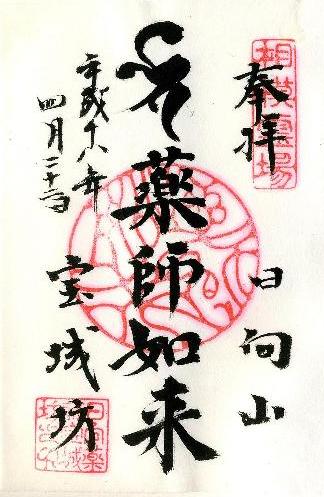 奉拝
日向山
薬師如来
宝城坊
平成十八年
四月二十二日
相模霊場